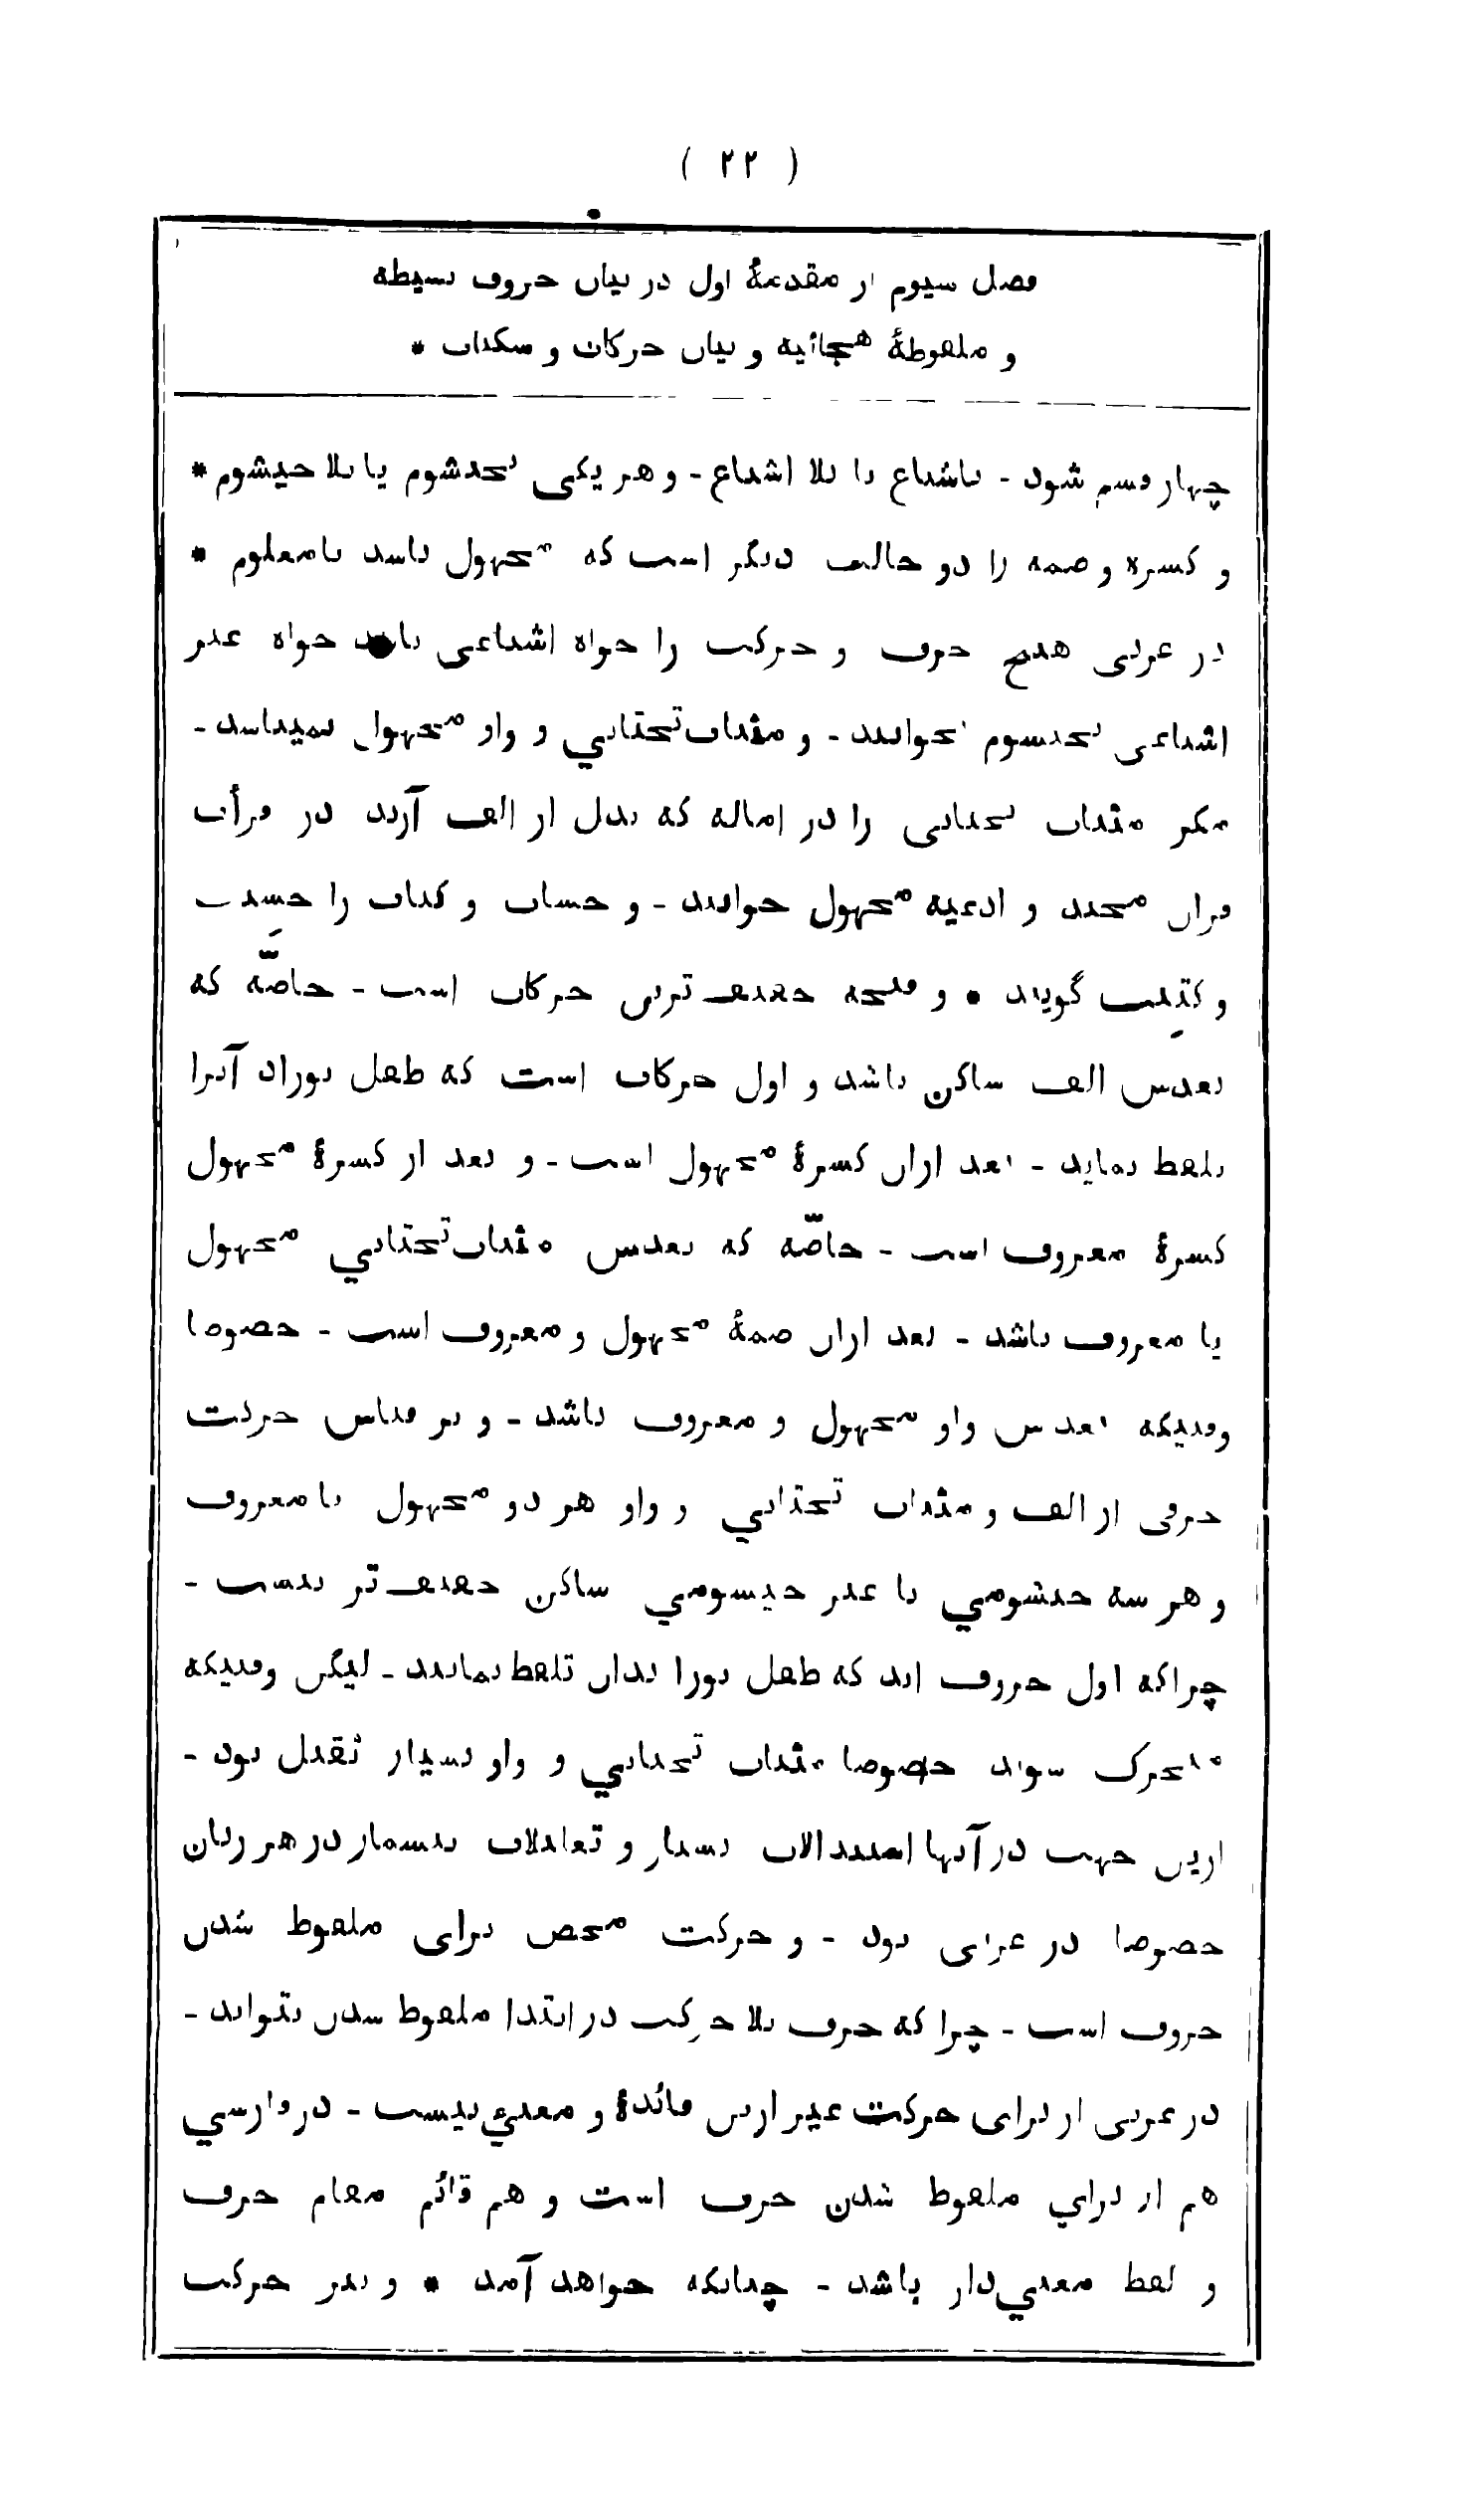 ( ۲۲ )
فصل سیوم از مقدمهٔ اول در بیان حروف بسیطه
و ملفوظهٔ هجائیه و بیان حرکات و سکنات *
چهار قسم شود - باشباع یا بلا اشباع - و هر یکی بخیشوم یا بلا خیشوم *
و کسره و ضمه را دو حالت دیگر است که مجهول باشد یا معلوم *
در عربی هیچ حرف و حرکت را خواه اشباعی باشد خواه غیر
اشباعی بخیشوم نخوانند - و مثناتحتاني و واو مجهول نمیباشد -
مگر مثنات تحتانی را در اماله که بدل از الف آرند در قرأت
قران مجید و ادعیه مجهول خوانند - و حساب و کتاب را حِسیب
و کتِیب گویند * و فتحه خفیف ترین حرکات است - خاصّه که
بعدش الف ساکن باشد و اول حرکات است که طفل نوزاد آنرا
تلفظ نماید - بعد ازان کسرهٔ مجهول است - و بعد از کسرهٔ مجهول
کسرهٔ معروف است - خاصّه که بعدش مثنات تحتاني مجهول
یا معروف باشد - بعد ازان ضمهٔ مجهول و معروف است - خصوصا
وقتیکه بعدش واو مجهول و معروف باشد - و بر قیاس حرکت
حرفی از الف و مثنات تحتاني و واو هر دو مجهول یا معروف
و هر سه خیشومي یا غیر خیشومي ساکن خفیف تر نیست -
چراکه اول حروف اند که طفل نوزا بدان تلفظ نمایند - لیکن وقتیکه
متحرک شوند خصوصا مثنات تحتاني و واو بسیار ثقیل بود -
ازین جهت در آنها استبدالات بسیار و تعلیلات بیشمار در هر زبان
خصوصا در عربی بود - و حرکت محض برای ملفوظ شدن
حروف است - چرا که حرف بلا حرکت در ابتدا ملفوظ شدن نتواند -
در عربی از برای حرکت غیر ازین فائدهٔ و معنیٔ نیست - در فارسي
هم از براي ملفوظ شدن حرف است و هم قائم مقام حرف
و لفظ معني‌دار باشد - چنانکه خواهد آمد * و نیز حرکت